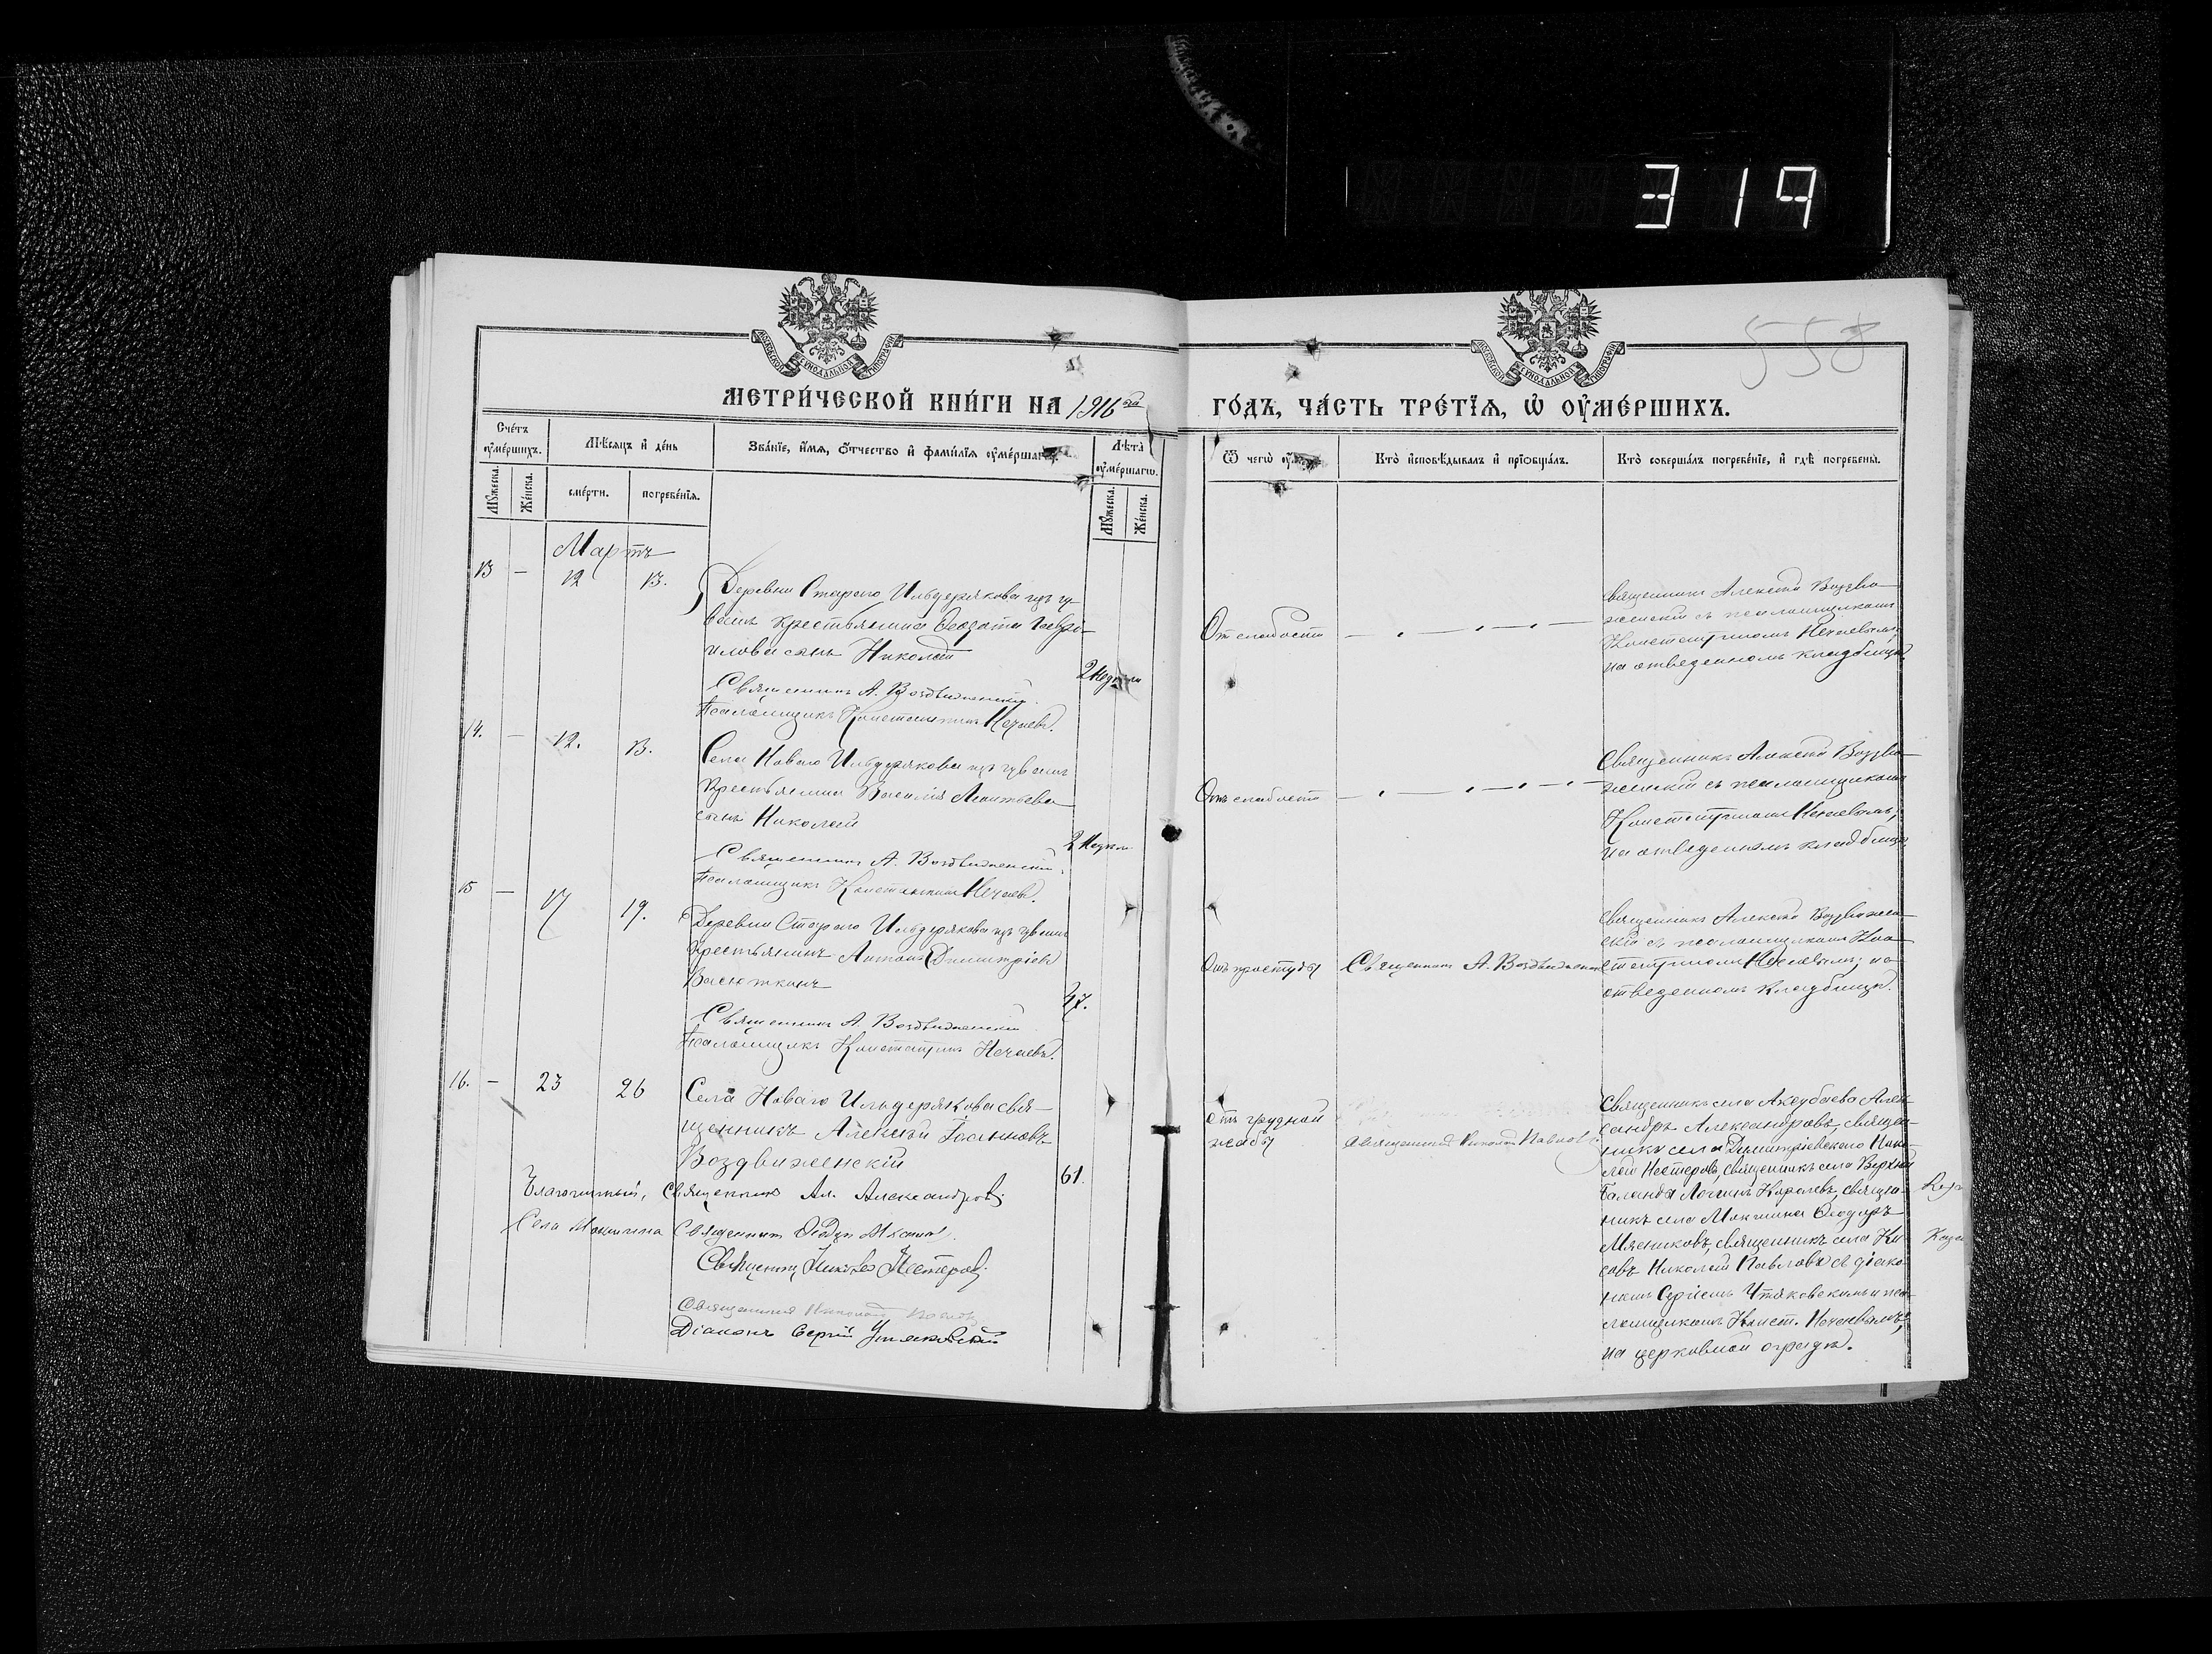 319
558
МЕТРИ́ЧЕСКОЙ КНИ́ГИ НА 1916 ый
ГО́ДЪ, ЧА́СТЬ ТРЕ́ТЇѦ, Ѡ҆ ОУ҆МЕ́РШИХЪ.
Сче́тъ оу҆ме́ршихъ.
Мѣ́сяцъ и҆ де́нь
Зва́нїе, и҆́мѧ, ѻ҆́тчество и҆ фами́лїѧ оу҆ме́ршагѡ.
Лѣ́та оу҆ме́ршагѡ.
Ѿ чегѡ̀
Кто̀ и҆сповѣ́дывалъ и҆ прїѻбща́лъ.
Кто̀ соверша́лъ погребе́нїе, и҆ гдѣ̀ погребены̀.
Мꙋ́жеска.
Же́нска.
сме́рти.
погребе́нїѧ.
Мꙋ́жеска.
Же́нска.
Мартъ
13 — 12 13.
Деревни Стараго Ильдерякова изъ чу-
вашъ крестьянина Ѳеодота Гаврі-
илова сынъ Николай
2 недѣли
Священникъ А. Воздвиженскій.
Псаломщикъ Константинъ Нечаевъ.
От слабости
Священникъ Алексій Воздви-
женскій съ псаломщикомъ
Константиномъ Нечаевымъ,
на отведенномъ кладбищѣ
14. — 12. 13.
Села Новаго Ильдерякова изъ чувашъ
крестьянина Василія Леонтьева
сынъ Николай
2 недѣли
Священникъ А. Воздвиженскій.
Псаломщикъ Константинъ Нечаевъ.
Отъ слабости
Священникъ Алексій Воздви-
женскій съ псаломщикомъ
Константиномъ Нечаевымъ,
на отведенномъ кладбищѣ
15 — 17 19.
Деревни Стараго Ильдерякова изъ чувашъ
крестьянинъ Антонъ Димитріевъ
Васюткинъ
47.
Священникъ А. Воздвиженскій
Псаломщикъ Константинъ Нечаевъ.
Отъ простуды
Священникъ А. Воздвиженскій
Священникъ Алексій Воздвижен-
скій съ псаломщикомъ Кон-
стантиномъ Нечаевымъ, на
отведенномъ кладбищѣ.
16. — 23 26
Села Новаго Ильдерякова свя-
щенникъ Алексій Іоанновъ
Воздвиженскій
61.
Благочинный, Священникъ Ал. Александровъ.
Села Мокшина Священникъ
Священникъ Николай Нестеровъ.
Священникъ Николай Павловъ
Діаконъ Сергій Утяковскій
Отъ грудной
жабы
Священникъ Николай Павловъ.
Священникъ села Аксубаева Алек-
сандръ Александровъ, священ-
никъ села Димитріевскаго Нико-
лай Нестеровъ, священникъ села Верхней
Баланды Логинъ Королевъ, священ-
никъ села Мокшина Ѳеодоръ
Мясниковъ, священникъ села Ки-
совъ Николай Павловъ съ діако-
номъ Сергіемъ Утяковскимъ и пса-
ломщикомъ Конст. Нечаевымъ,
на церковной оградѣ.